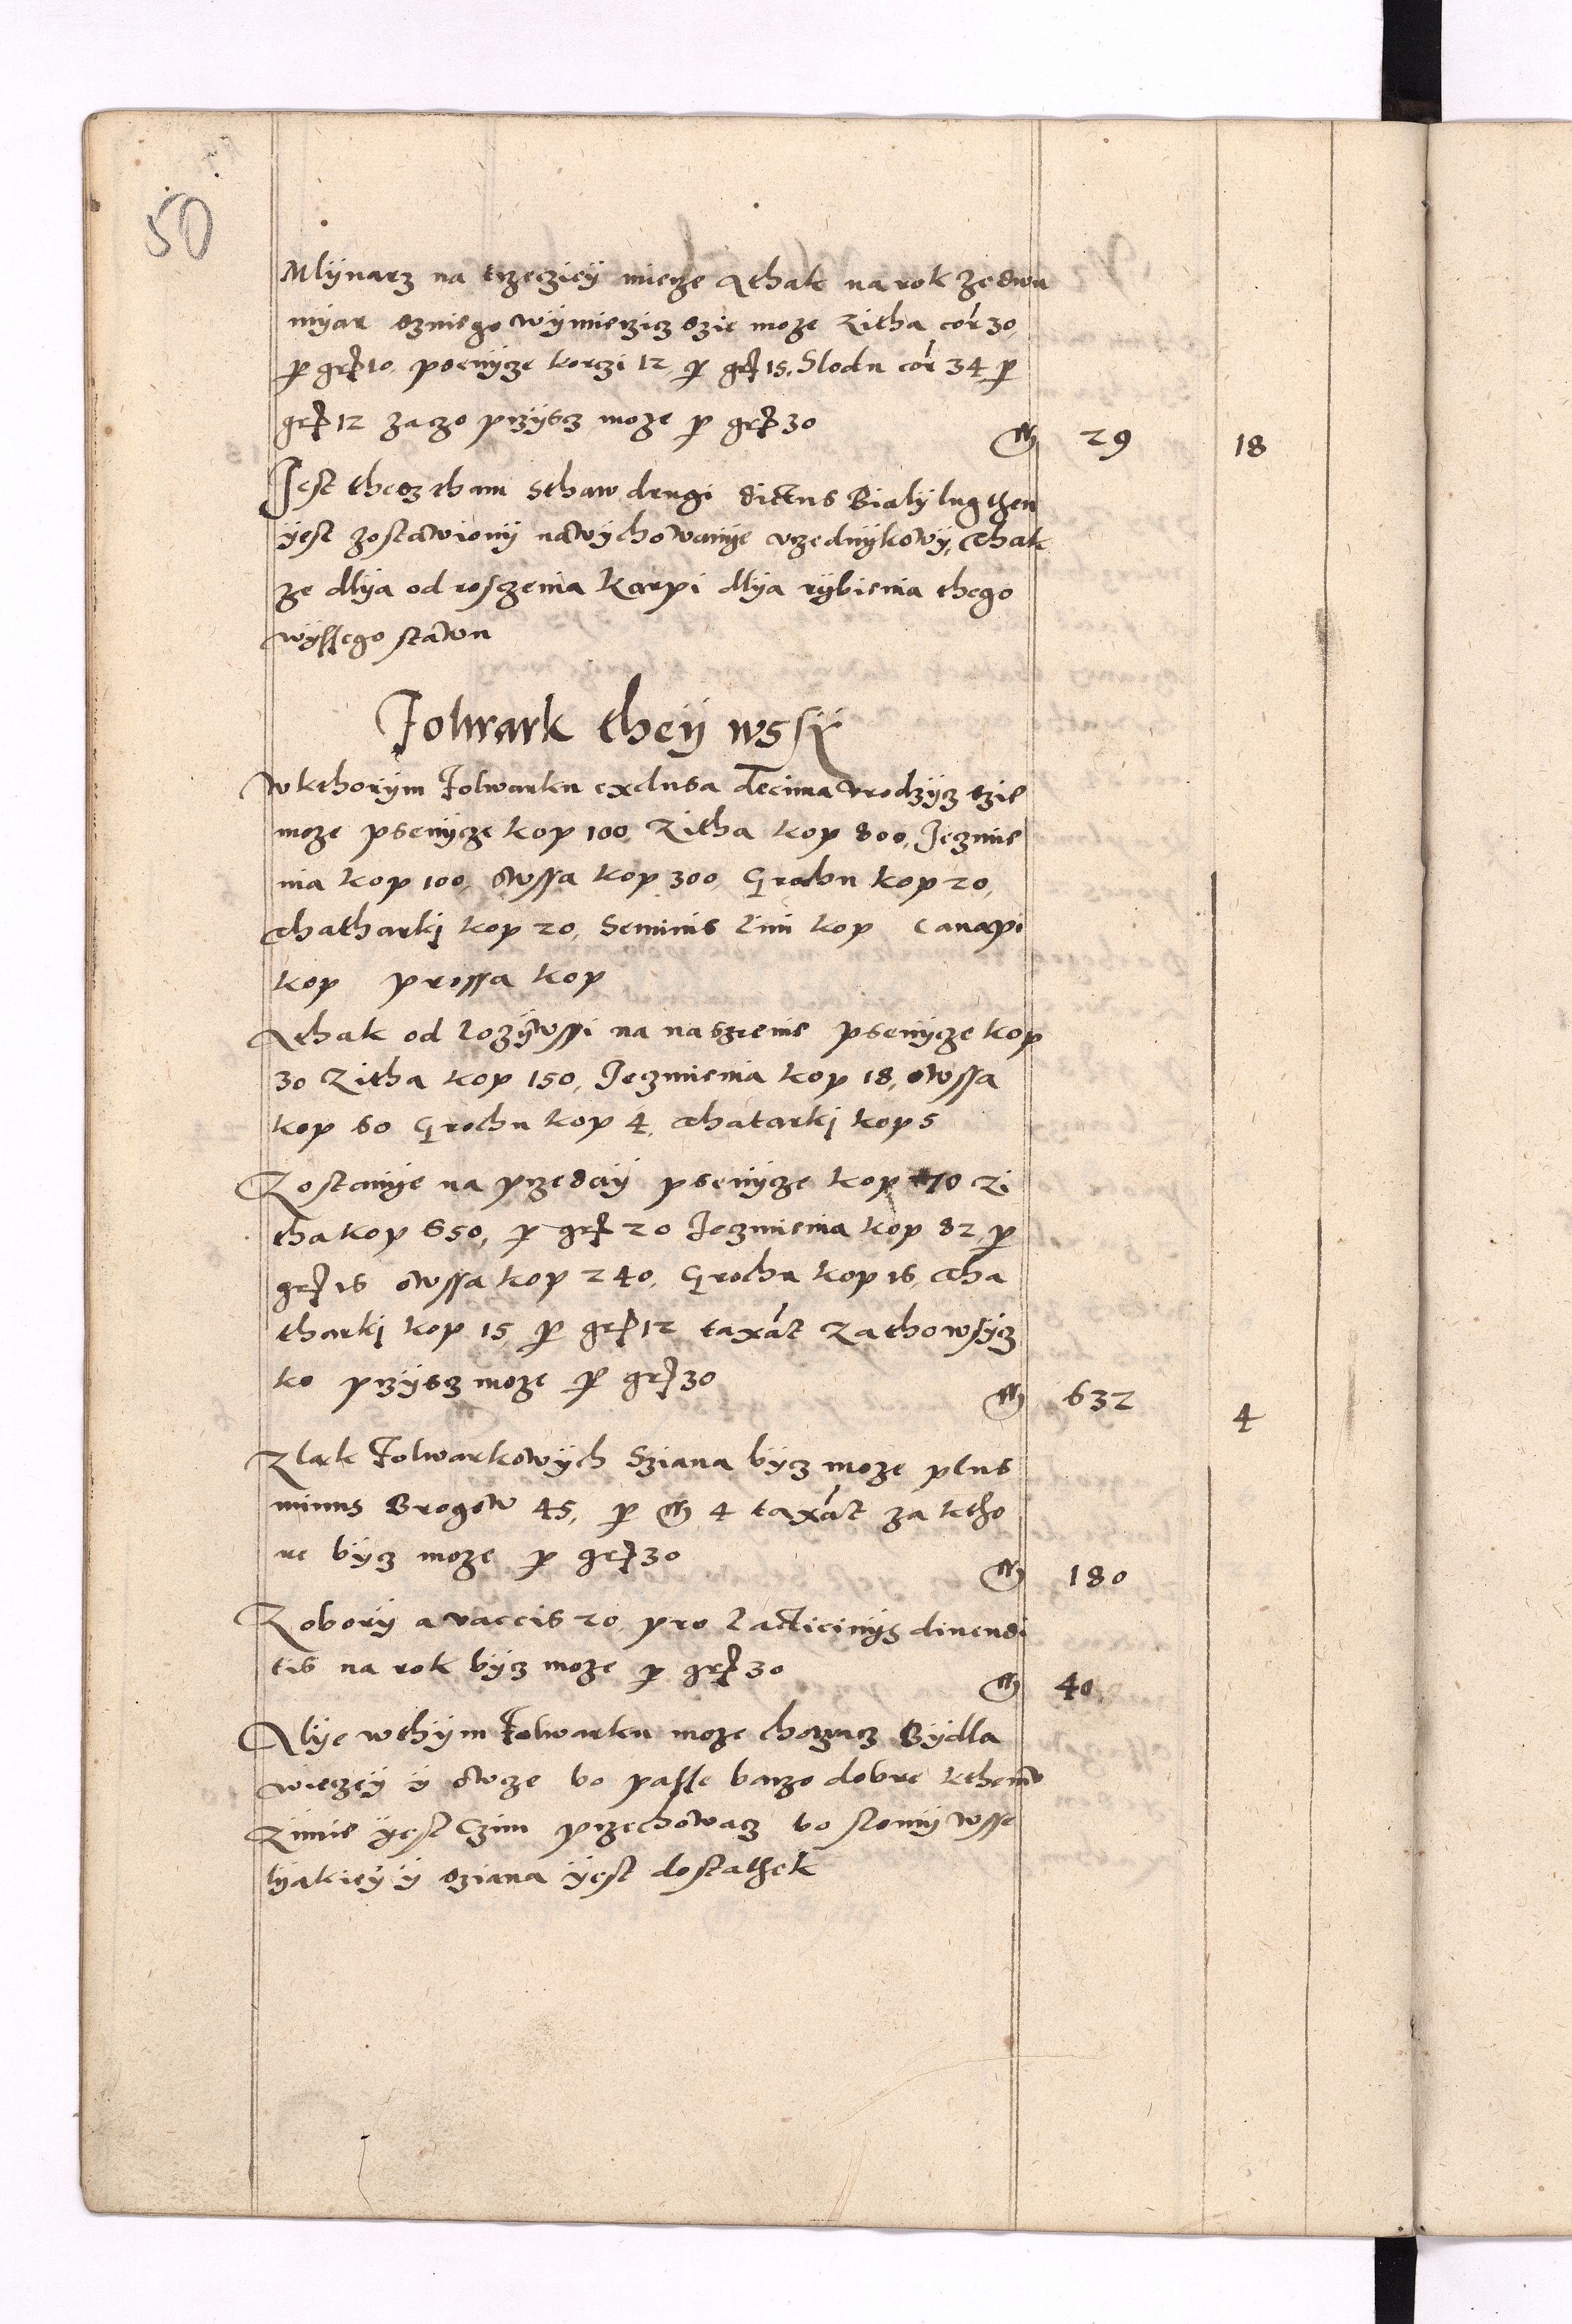 50
Mlÿnarz na trzecziey mierze Athak na rok ze dwu
mÿar szniego wÿmierzicz szie moze Zitha cor 30,
per grß 10, psenÿcze korczi 12, per grß 15, Slodu cor 34 per
grß 12 zaczo przÿscz moze per grß 30 M 29 18
Jest thesz tham Sthaw drugi dictus Bialÿ lug then
ÿest zostawionÿ nawÿchowanÿe vrzednÿkowÿ, Athak
ze dlÿa od rosczenia Karpi dlÿa rÿbienia thego
wÿssego stawu
Folwark theÿ wssÿ
W kthorÿm Folwarku exclusa decima vrodzÿcz szie
moze psenÿcze kop 100 Zitha kop 800, Jeczmie
nia kop 100, owssa kop 300, Grochu kop 20,
Thatharki kop 20, Seminis lini kop Canapi
kop prossa kop
Athak od lozÿwssi na naszienie psenÿcze kop
30 Zitha kop 150, Jeczmienia kop 18, owssa
kop 60 Grochu kop 4, Thatarki kop 5
Zostanÿe na przedaÿ psenÿcze kop 70 Zi
tha kop 650, per grß 20 Jeczmienia kop 82, per
grß 16 owssa kop 240, Grochu kop 16, Tha
tharki kop 15 per grß 12 taxant Zathowsÿcz
ko przÿscz moze per grß 30 M 632 4
Zlak Folwarkowÿch Sziana bÿcz moze plus
minus Brogow 45, per M 4 taxant za ktho
re bÿcz moze per grß 30 M 180
Z oborÿ a vaccis 20, pro lacticinÿs divendi
tis na rok bÿcz moze per grß 30 M 40
Alÿe wthÿm Folwarku moze chowacz Bÿdla
wieczeÿ ÿ owcze bo passe barzo dobre kthemw
Zimie ÿest Czim przechowacz bo slomÿ wsse
lÿakieÿ ÿ sziana ÿest dostathek